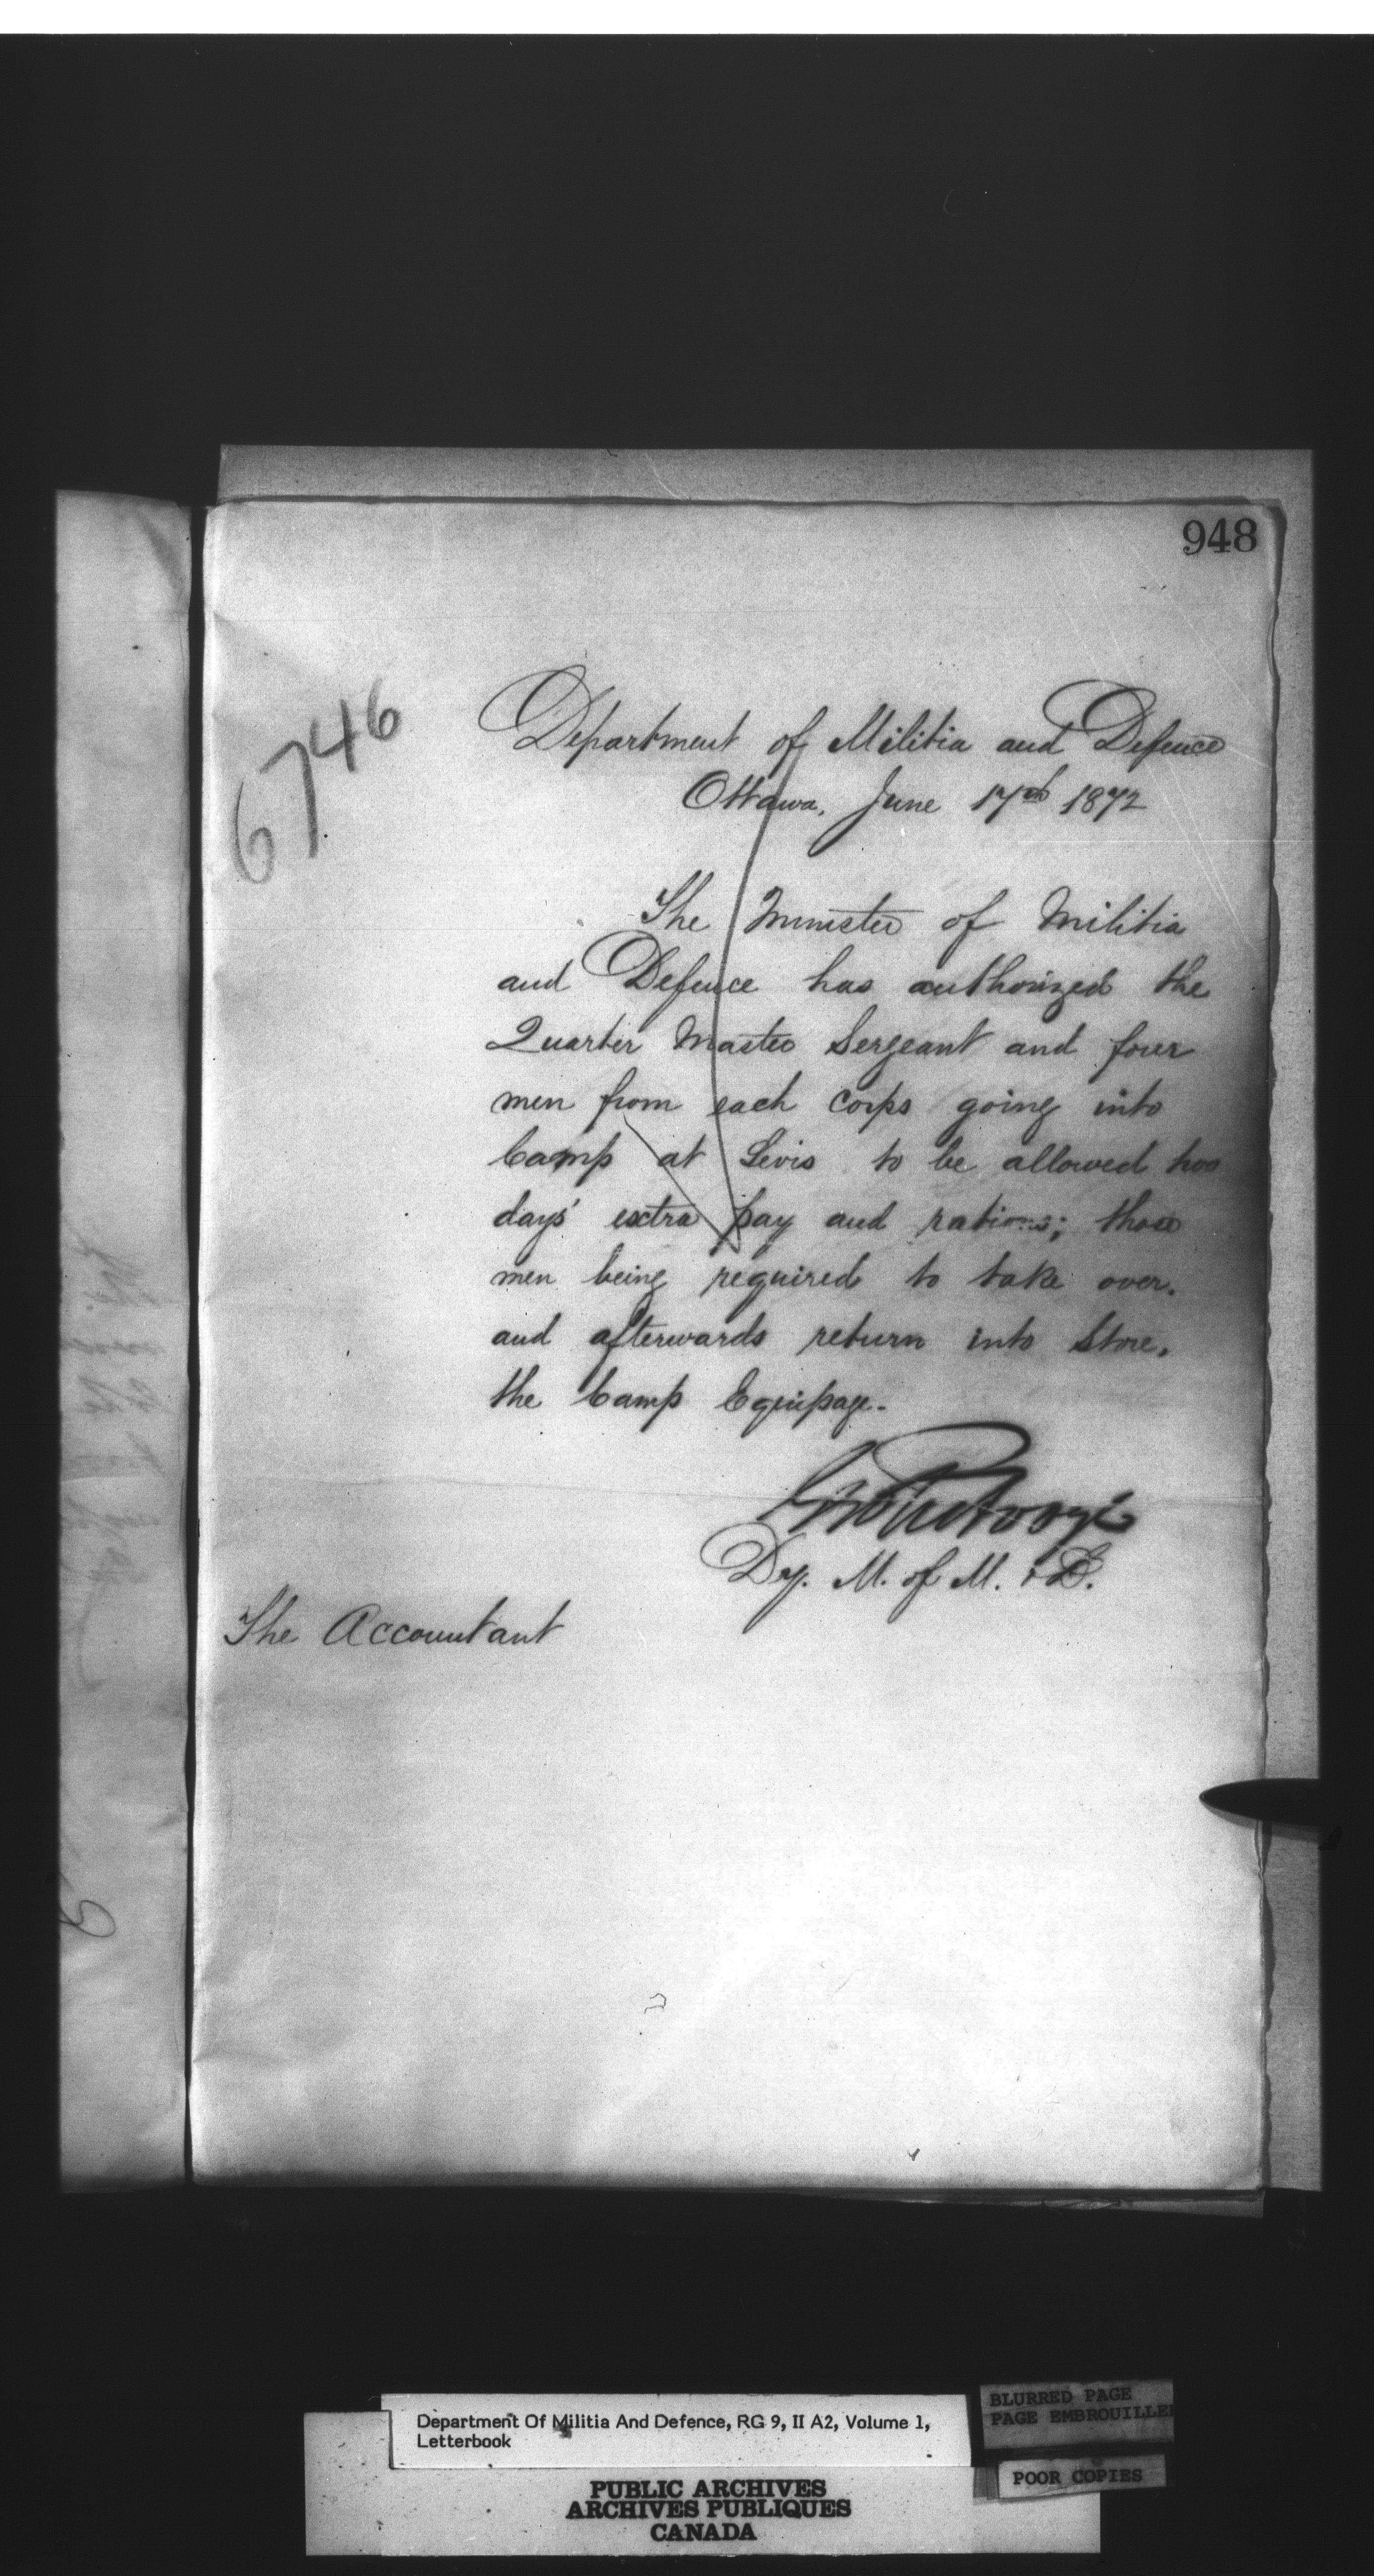 948
6746
Department of Militia and Defence
Ottawa, June 17th 1872
The Minister of Militia
and Defence has authorized the
Quarter Master Sergeant and four
men from each Corps going into
Camp at Levis to be allowed two
days' extra pay and rations; those
men being required to take over,
and afterwards return into Store,
the Camp Equipage.
Dy. M. of M. & D.
The Accountant
Department Of Militia And Defence, RG 9, II A2, Volume 1,
Letterbook
BLURRED PAGE
PAGE EMBROUILLEE
POOR COPIES
PUBLIC ARCHIVES
ARCHIVES PUBLIQUES
CANADA